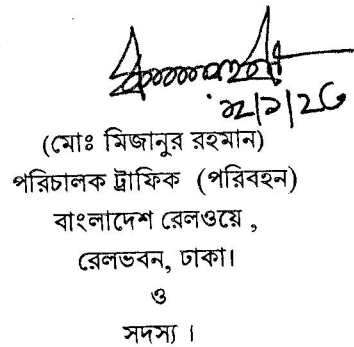 (মোঃ মিজানুর রহমান)
পরিচালক ট্রাফিক (পরিবহন)
বাংলাদেশ রেলওয়ে ,
রেলভবন, ঢাকা।
ও
সদস্য ।